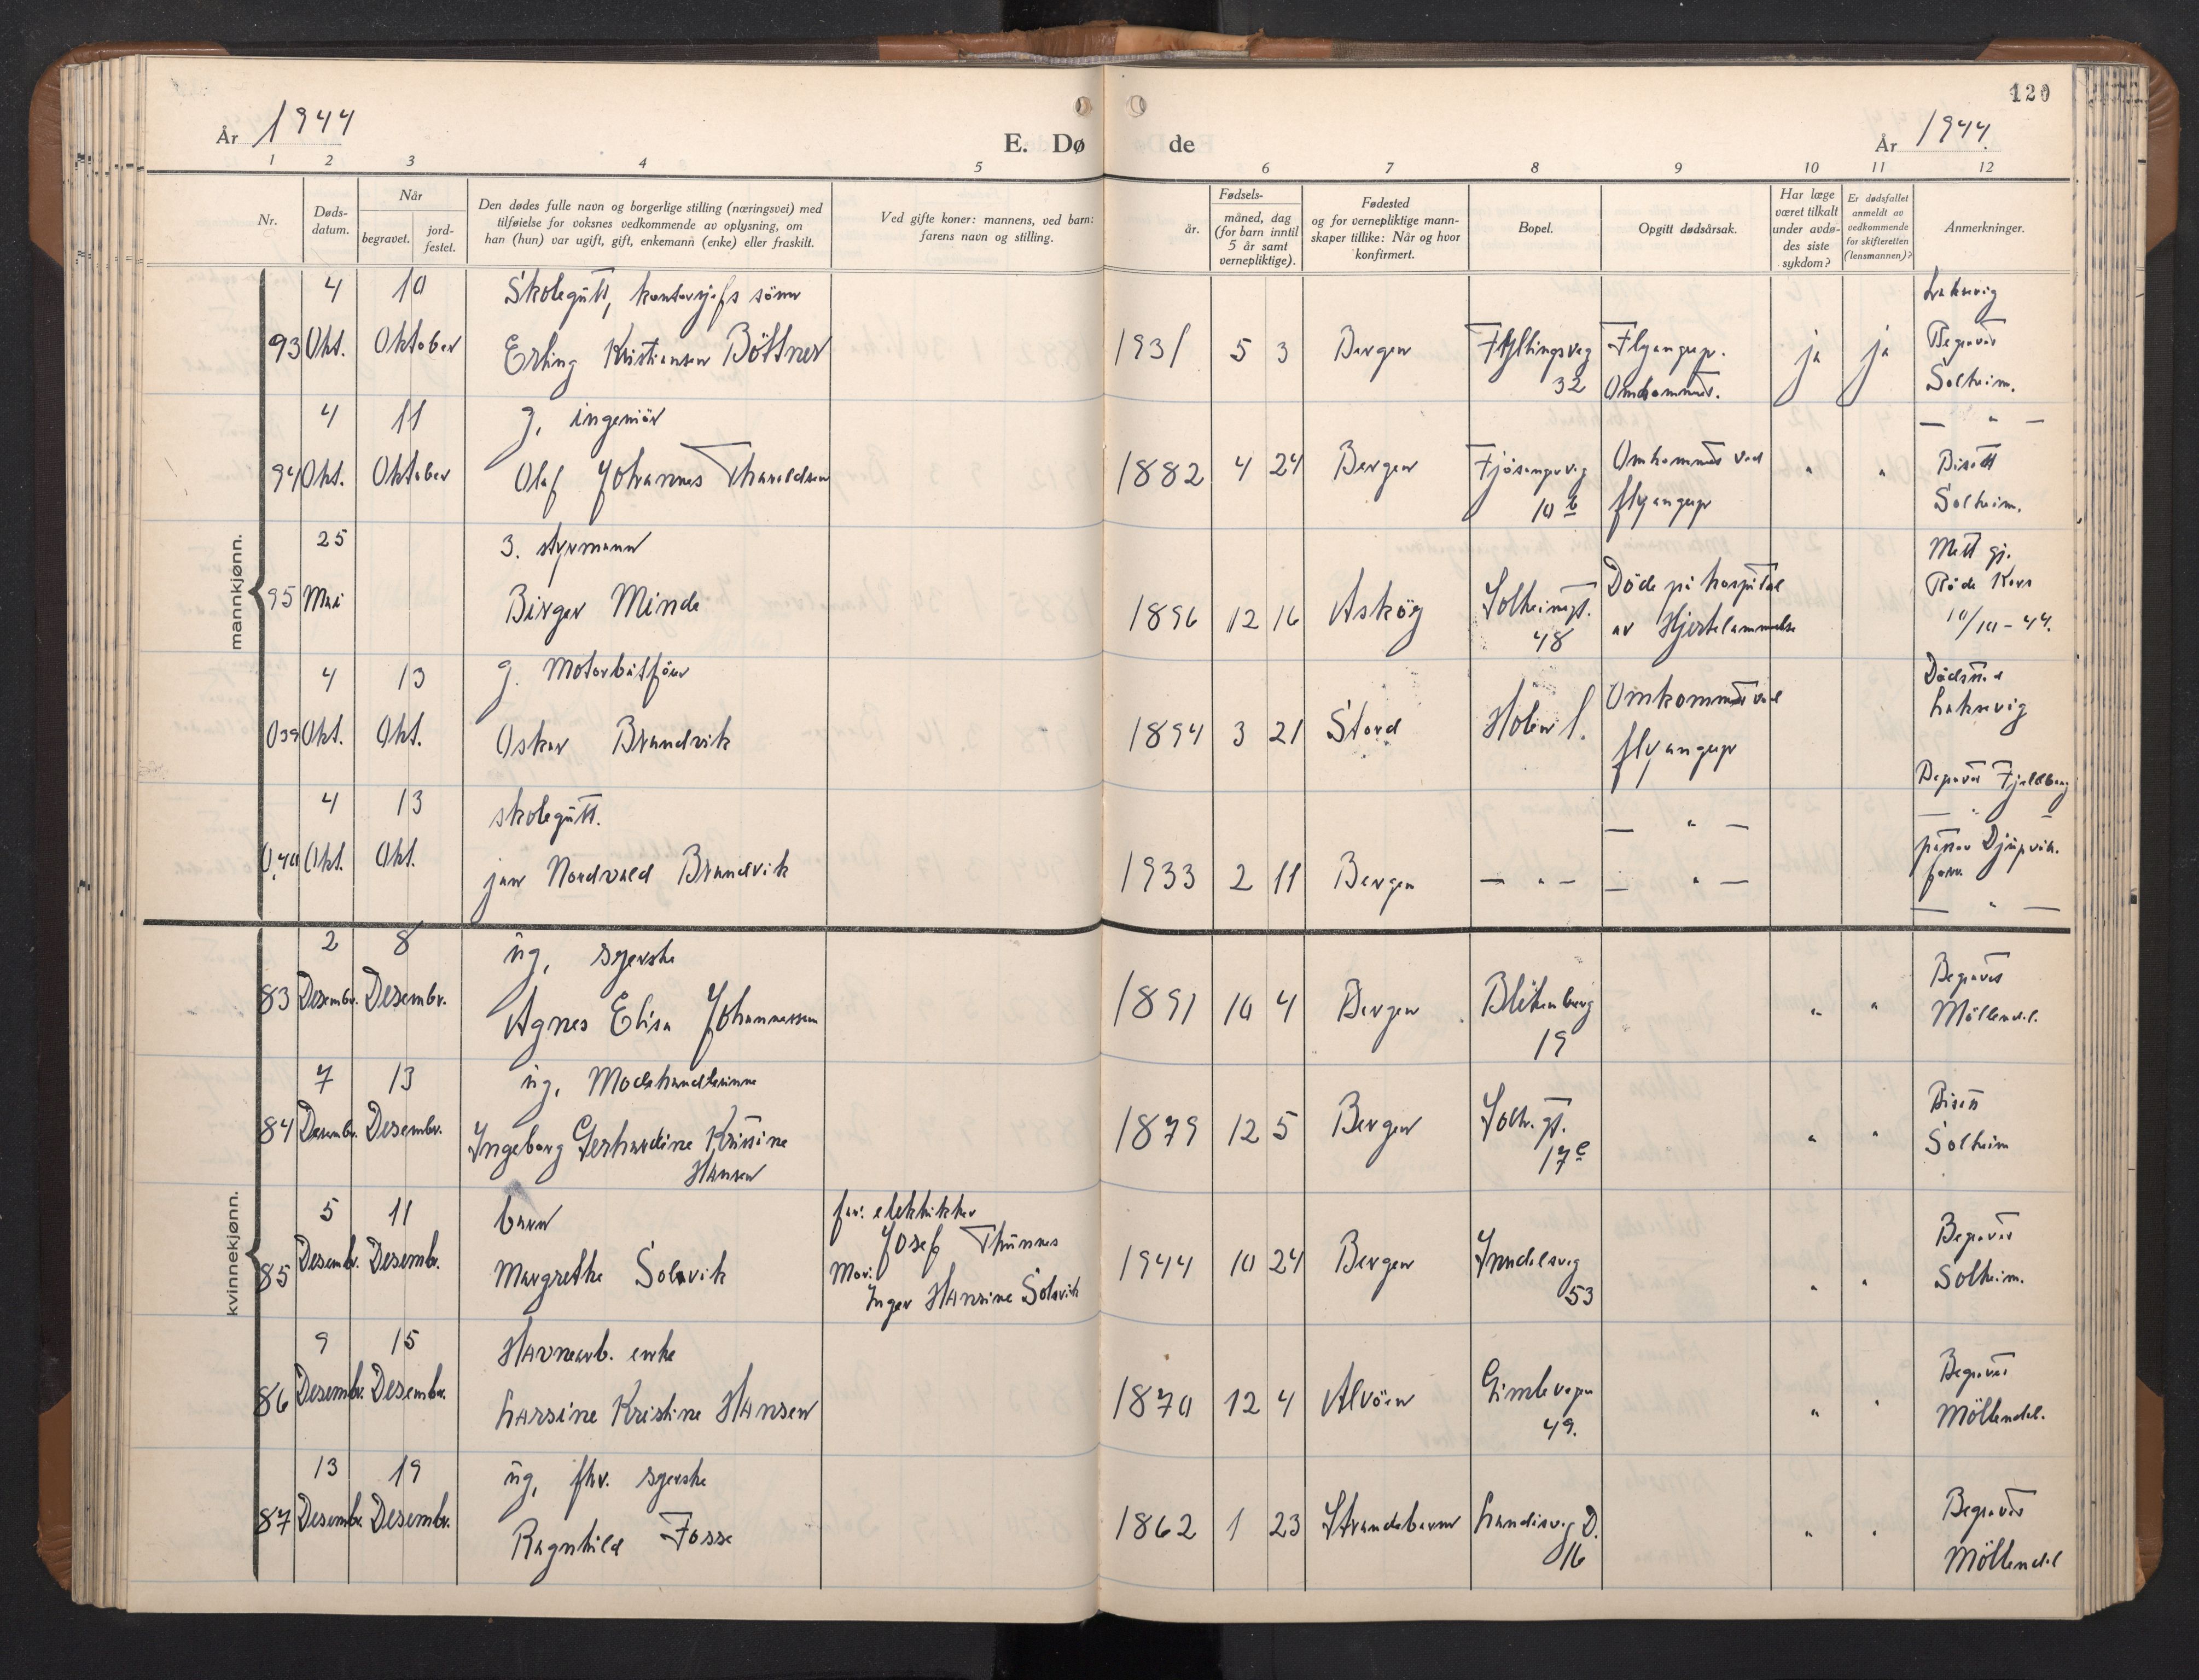 120
År 1944
E. Dø de
År 1944.
1 2 3 4 5 6 7 8 9 10 11 12
Nr.
Døds-
datum.
Når
begravet.
jord-
festet.
Den dødes fulle navn og borgerlige stilling (næringsvei) med
tilføielse for voksnes vedkommende av oplysning, om
han (hun) var ugift, gift, enkemann (enke) eller fraskilt.
Ved gifte koner: mannens, ved barn:
farens navn og stilling.
Fødsels-
år.
måned, dag
(for barn inntil
5 år samt
vernepliktige).
Fødested
og for vernepliktige mann-
skaper tillike: Når og hvor
konfirmert.
Bopel.
Opgitt dødsårsak.
Har læge
været tilkalt
under avdø-
des siste
sykdom?
Er dødsfallet
anmeldt av
vedkommende
for skifteretten
(lensmannen)?
Anmerkninger.
mannkjønn.
4 10 Skolegutt, kontorsjefs sönn Laksevig
93 Okt. Oktober Erling Kristiansen Böttner 1931 5 3 Bergen Fyllingsveg Flyangrep. ja ja Begravet
32 Omkommet. Solheim.
4 11 g. ingeniör — " —
94 Okt. Oktober Olaf Johannes Tharaldsen 1882 4 24 Bergen Fjösangerveg Omkommet ved " " Bisatt
10 b flyangrep Solheim.
25 3. styrmann Met gj.
95 Mai Birger Minde 1896 12 16 Askøy Solheimsgt. Döde på hospital Röde Kors
48 av Hjertelammelse 10/10-44.
4 13 g. Motorbåtförer Dödsted
039 Okt. Okt. Oskar Brandvik 1894 3 21 Stord Holen s. Omkommet ved Laksevig
flyangrep
Begravet Fjellberg
4 13 skolegutt. — " —
0,40 Okt. Okt. jan Nordvald Brandvik 1933 2 11 Bergen — " — — " — Djupvik.
— " —
kvinnekjønn.
2 8 ug, syerske Begravet
83 Desembr. Desembr. Agnes Elisa Johannessen 1891 10 4 Bergen Blekenberg " " Möllendal.
19
7 13 ug, Modehandlerinne Bisatt
84 Desembr. Desembr. Ingeborg Gerhardine Kristine 1879 12 5 Bergen Solh.gt. " " Solheim
Hansen 17 c
5 11 barn far: elektriker Begravet
85 Desembr. Desembr. Margrethe Solavik Josef Thunnes 1944 10 24 Bergen Inndalsveg " " Solheim.
Mor: Inger Hansine Solavik 53
9 15 Havnearb. enke Begravet
86 Desembr. Desembr. Larsine Kristine Hansen 1870 12 4 Alvöen Gimlevegen " " Möllendal.
49.
13 19 ug, fhv. syerske Begravet
87 Desembr. Desembr. Ragnhild Fosse 1862 1 23 Strandebarm Landåsveg D. " " Möllendal
16